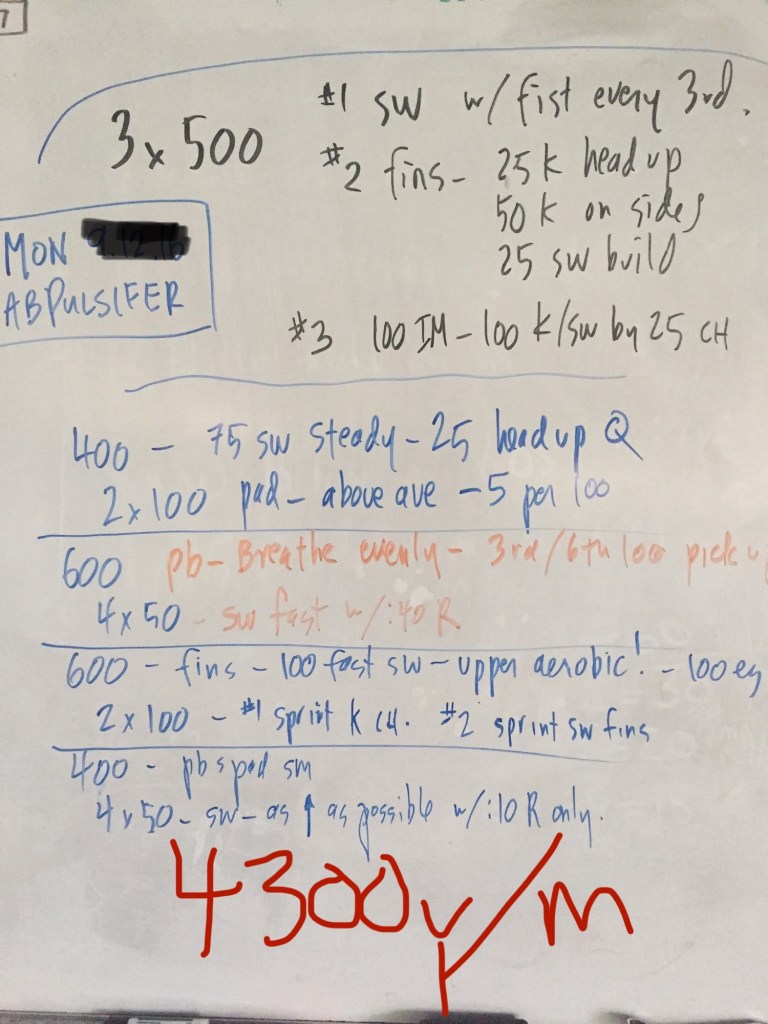 7
3 x 500
#1 sw w/ fist every 3rd.
#2 fins - 25 k head up
50 k on sides
25 sw build
MON
ABPULSIFER
#3 100 IM - 100 k/sw by 25 CH
400 - 75 sw steady - 25 head up Q
2 x 100 pad - above ave - 5 per 100
600 pb - Breathe evenly - 3rd/6th 100 pick
4 x 50 - sw fast w/:40 R
600 - fins - 100 fast sw - upper aerobic! - 100 ez
2 x 100 - #1 sprint k CH. #2 sprint sw fins
400 - pb s pad sm
4 x 50 - sw - as ↑ as possible w/:10 R only.
4300y/m